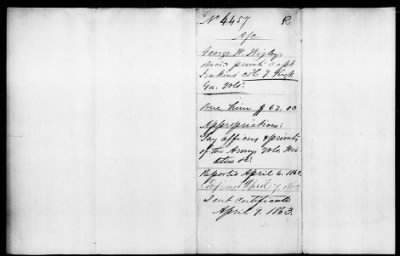 No 4457 R
A/c
George W. Digby
Decd private Capt
Jenkins Co H 7 Regt
Ga. Vols.
Due him $62.03
Appropriation:
Pay officers & privates
of the Army Vols
Reported April 6. 1863
April 7. 1863
Sent certificate
April 7. 1863.